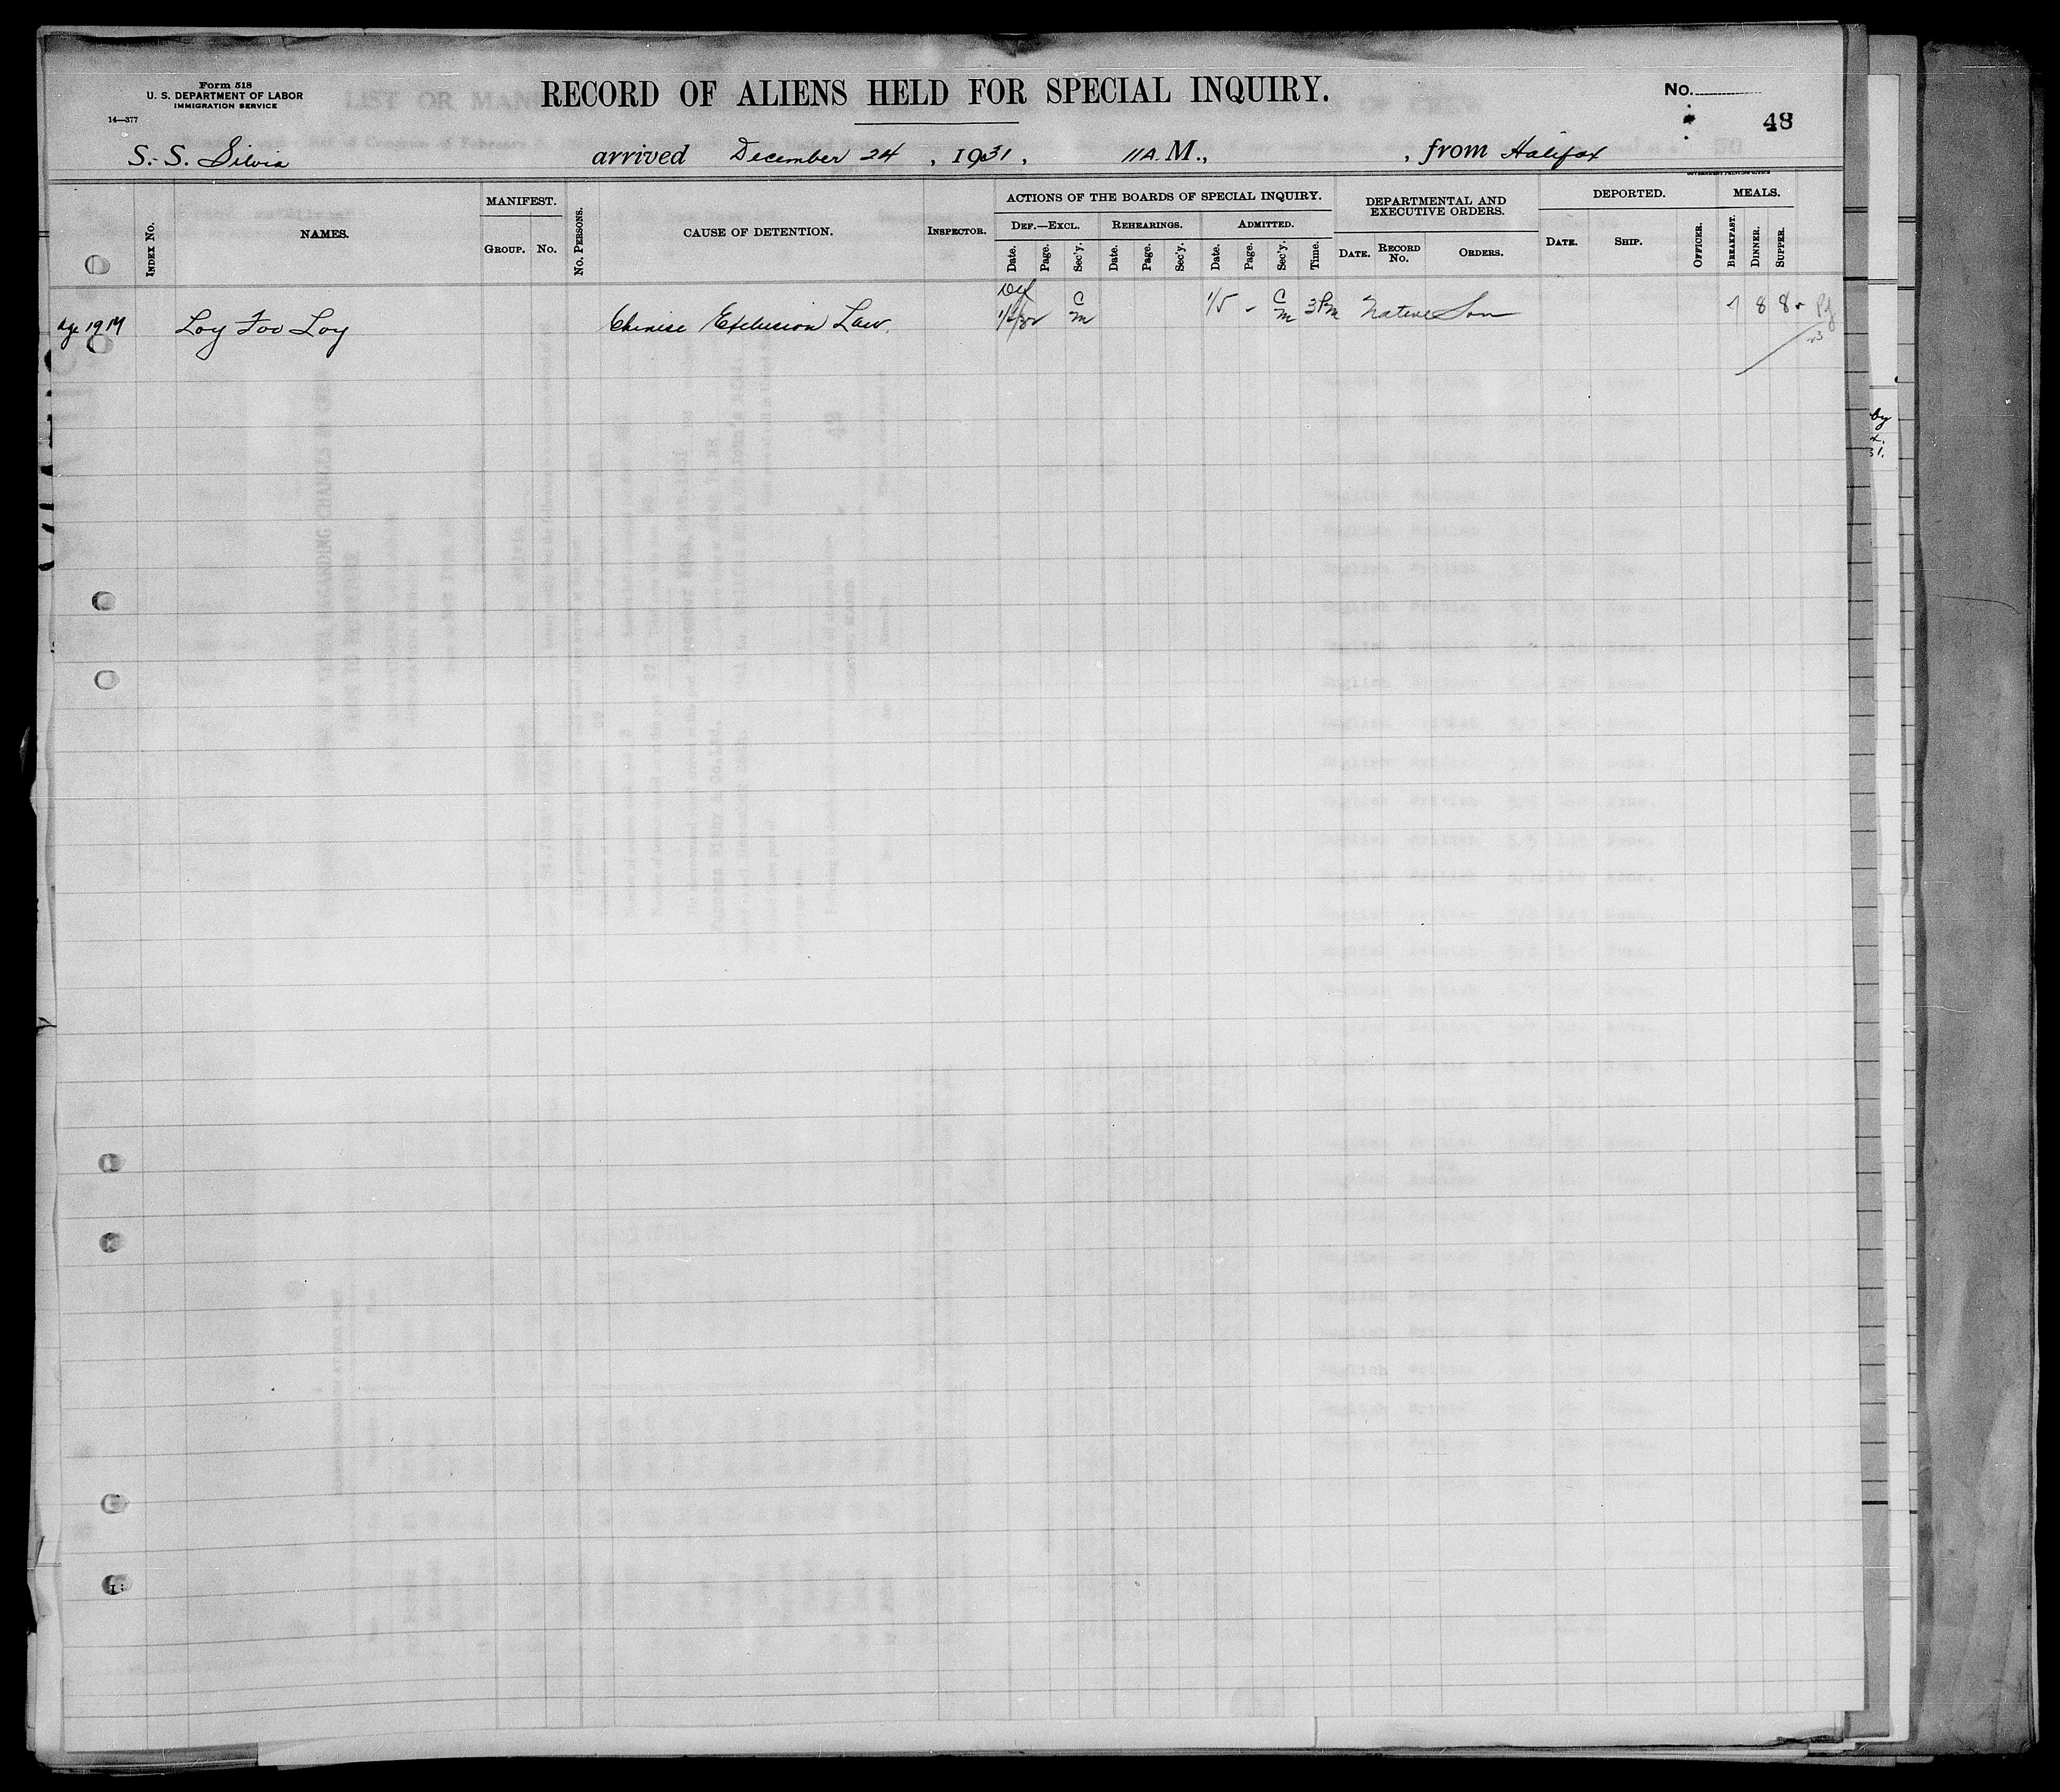 Form 518
U. S. DEPARTMENT OF LABOR
IMMIGRATION SERVICE
14—377
RECORD OF ALIENS HELD FOR SPECIAL INQUIRY.
No.
48
S. S. Silvia arrived December 24, 1931, 11 A. M., , from Halifax
GOVERNMENT PRINTING OFFICE
INDEX No.
NAMES.
MANIFEST.
GROUP. No.
No. PERSONS.
CAUSE OF DETENTION.
INSPECTOR.
ACTIONS OF THE BOARDS OF SPECIAL INQUIRY.
DEF.—EXCL. REHEARINGS. ADMITTED.
Date. Page. Sec'y. Date. Page. Sec'y. Date. Page. Sec'y. Time.
DEPARTMENTAL AND
EXECUTIVE ORDERS.
DATE. RECORD No. ORDERS.
DEPORTED.
DATE. SHIP. OFFICER.
MEALS.
BREAKFAST. DINNER. SUPPER.
Age 19 M Loy Foo Loy Chinese Exclusion Law. Def C M 1/5 - C M 3 PM Native Son 7 8 8